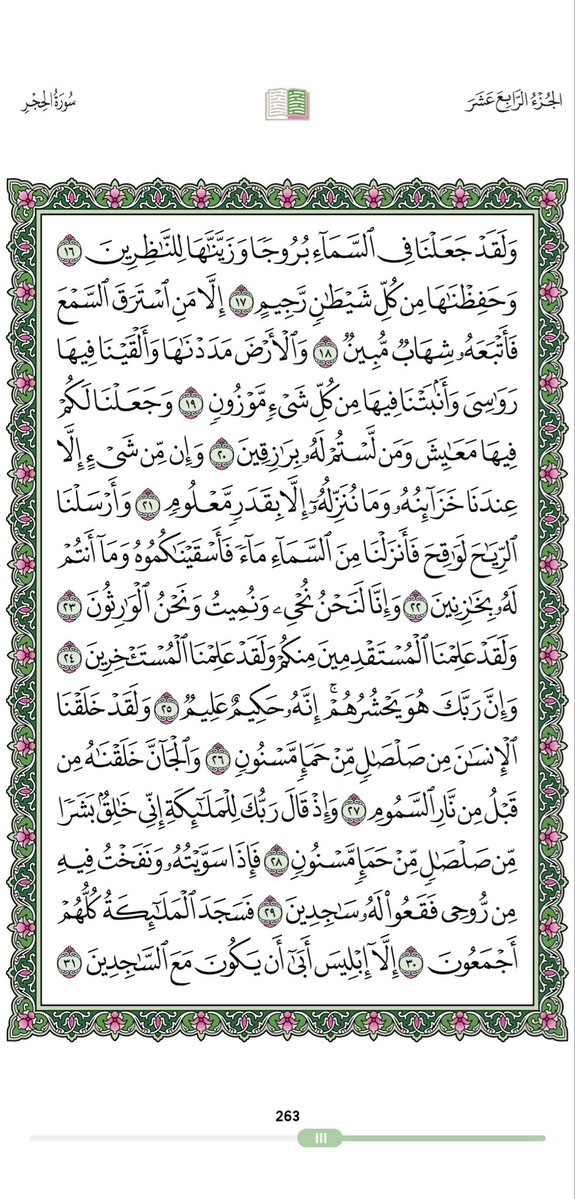 الجُزْءُ الرَّابِعَ عَشَرَ
سُورَةُ الحِجْرِ
وَلَقَدْ جَعَلْنَا فِى ٱلسَّمَآءِ بُرُوجًا وَزَيَّنَّـٰهَا لِلنَّـٰظِرِينَ ١٦
وَحَفِظْنَـٰهَا مِن كُلِّ شَيْطَـٰنٍ رَّجِيمٍ ١٧ إِلَّا مَنِ ٱسْتَرَقَ ٱلسَّمْعَ
فَأَتْبَعَهُۥ شِهَابٌ مُّبِينٌ ١٨ وَٱلْأَرْضَ مَدَدْنَـٰهَا وَأَلْقَيْنَا فِيهَا
رَوَٰسِىَ وَأَنۢبَتْنَا فِيهَا مِن كُلِّ شَىْءٍ مَّوْزُونٍ ١٩ وَجَعَلْنَا لَكُمْ
فِيهَا مَعَـٰيِشَ وَمَن لَّسْتُمْ لَهُۥ بِرَٰزِقِينَ ٢٠ وَإِن مِّن شَىْءٍ إِلَّا
عِندَنَا خَزَآئِنُهُۥ وَمَا نُنَزِّلُهُۥٓ إِلَّا بِقَدَرٍ مَّعْلُومٍ ٢١ وَأَرْسَلْنَا
ٱلرِّيَـٰحَ لَوَٰقِحَ فَأَنزَلْنَا مِنَ ٱلسَّمَآءِ مَآءً فَأَسْقَيْنَـٰكُمُوهُ وَمَآ أَنتُمْ
لَهُۥ بِخَـٰزِنِينَ ٢٢ وَإِنَّا لَنَحْنُ نُحْىِۦ وَنُمِيتُ وَنَحْنُ ٱلْوَٰرِثُونَ ٢٣
وَلَقَدْ عَلِمْنَا ٱلْمُسْتَقْدِمِينَ مِنكُمْ وَلَقَدْ عَلِمْنَا ٱلْمُسْتَـْٔخِرِينَ ٢٤
وَإِنَّ رَبَّكَ هُوَ يَحْشُرُهُمْ ۚ إِنَّهُۥ حَكِيمٌ عَلِيمٌ ٢٥ وَلَقَدْ خَلَقْنَا
ٱلْإِنسَـٰنَ مِن صَلْصَـٰلٍ مِّنْ حَمَإٍ مَّسْنُونٍ ٢٦ وَٱلْجَآنَّ خَلَقْنَـٰهُ مِن
قَبْلُ مِن نَّارِ ٱلسَّمُومِ ٢٧ وَإِذْ قَالَ رَبُّكَ لِلْمَلَـٰٓئِكَةِ إِنِّى خَـٰلِقٌۢ بَشَرًا
مِّن صَلْصَـٰلٍ مِّنْ حَمَإٍ مَّسْنُونٍ ٢٨ فَإِذَا سَوَّيْتُهُۥ وَنَفَخْتُ فِيهِ
مِن رُّوحِى فَقَعُوا۟ لَهُۥ سَـٰجِدِينَ ٢٩ فَسَجَدَ ٱلْمَلَـٰٓئِكَةُ كُلُّهُمْ
أَجْمَعُونَ ٣٠ إِلَّآ إِبْلِيسَ أَبَىٰٓ أَن يَكُونَ مَعَ ٱلسَّـٰجِدِينَ ٣١
263